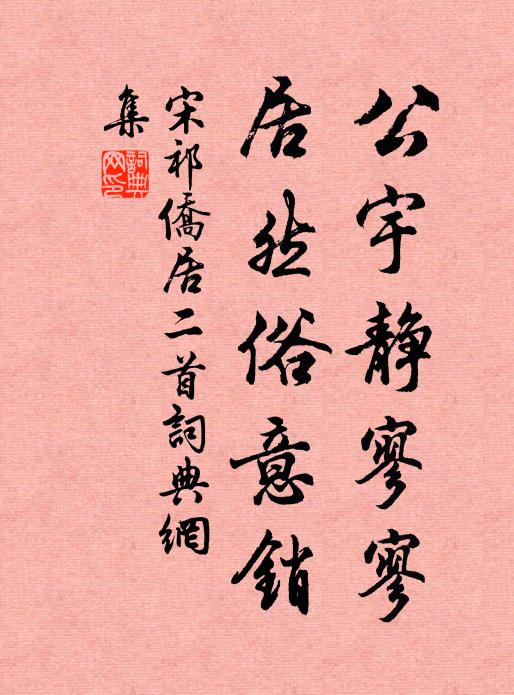 公宇静寥寥
居然俗意銷
宋祁僑居二首詞典網
集
詞典
网印